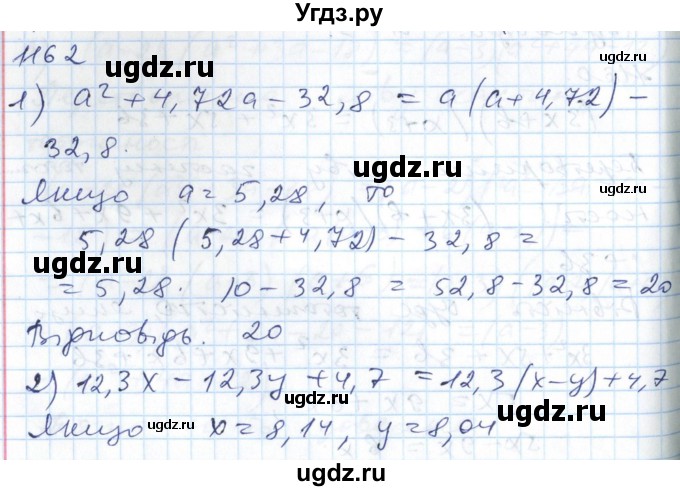 Угдз.ру
1162
ugdz.ru ugdz.ru
1) a² + 4,72a - 32,8 = a (a + 4,72) -
32,8.
ugdz.ru ugdz.ru
Якщо a = 5,28, то
5,28 (5,28 + 4,72) - 32,8 =
ugdz.ru ugdz.ru
= 5,28 · 10 - 32,8 = 52,8 - 32,8 = 20
Відповідь. 20
ugdz.ru ugdz.ru
2) 12,3x - 12,3y + 4,7 = 12,3 (x - y) + 4,7
ugdz.ru
Якщо x = 8,14, y = 8,04
ugdz.ru ugdz.ru